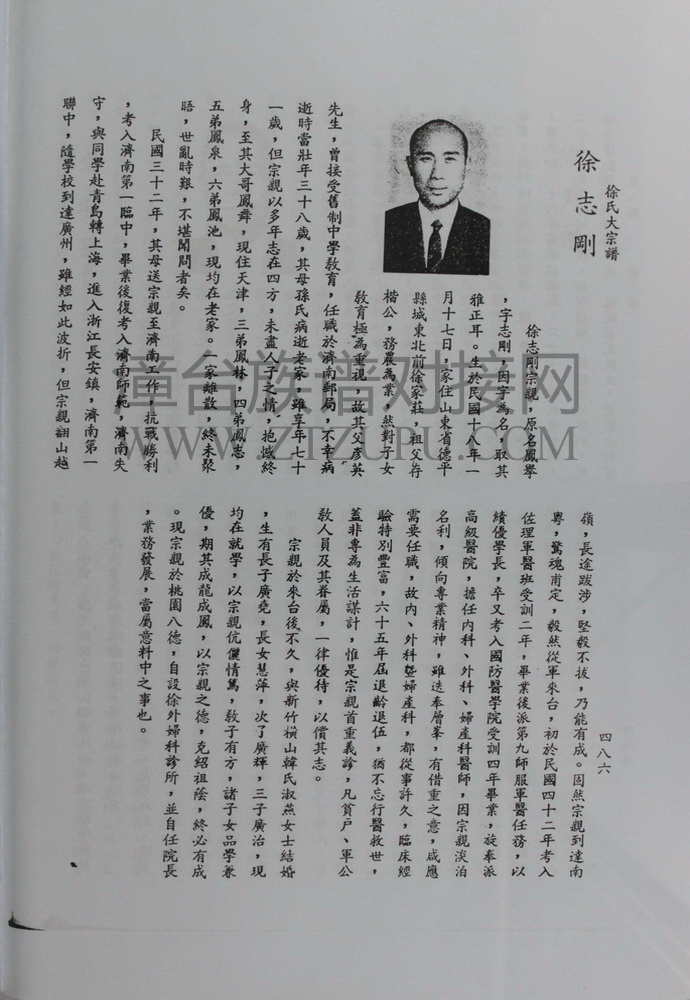 徐氏大宗譜
徐志剛
徐志剛宗親，原名鳳舉
，字志剛，因字為名，取其
雅正耳。生於民國十八年一
月十七日，家住山東省德平
縣城東北前徐家莊，祖父存
楷公，務農為業，然對子女
教育極為重視，故其父彥英
先生，曾接受舊制中學教育，任職於濟南郵局，不幸病
逝時當壯年三十八歲，其母孫氏病逝老家，雖享年七十
一歲，但宗親以多年志在四方，未盡人子之情，抱憾終
身，至其大哥鳳舞，現住天津，三弟鳳林，四弟鳳志，
五弟鳳泉，六弟鳳池，現均在老家。一家離散，終未聚
晤，世亂時艱，不堪聞問者矣。
民國三十二年，其母送宗親至濟南工作，抗戰勝利
，考入濟南第一臨中，畢業後復考入濟南師範，濟南失
守，與同學赴青島轉上海，進入浙江長安鎮，濟南第一
聯中，隨學校到達廣州，雖經如此波折，但宗親翻山越
嶺，長途跋涉，堅毅不拔，乃能有成。固然宗親到達南
粵，驚魂甫定，毅然從軍來台，初於民國四十二年考入
佐理軍醫班受訓二年，畢業後派第九師服軍醫任務，以
績優學長，卒又考入國防醫學院受訓四年畢業，旋奉派
高級醫院，擔任內科、外科、婦產科醫師，因宗親淡泊
名利，傾向專業精神，雖迭奉層峯，有借重之意，咸應
需要任職，故內、外科暨婦產科，都從事許久，臨床經
驗特別豐富，六十五年屆退齡退伍，猶不忘行醫救世，
蓋非專為生活謀計，惟是宗親首重義診，凡貧戶、軍公
教人員及其眷屬，一律優待，以償其志。
宗親於來台後不久，與新竹橫山韓氏淑燕女士結婚
，生有長子廣堯，長女慧萍，次子廣輝，三子廣治，現
均在就學，以宗親伉儷情篤，教子有方，諸子女品學兼
優，期其成龍成鳳，以宗親之德，克紹祖蔭，終必有成
。現宗親於桃園八德，自設徐外婦科診所，並自任院長
，業務發展，當屬意料中之事也。
四八六
童台族谱对接网
WWW.ZTZUPU.COM